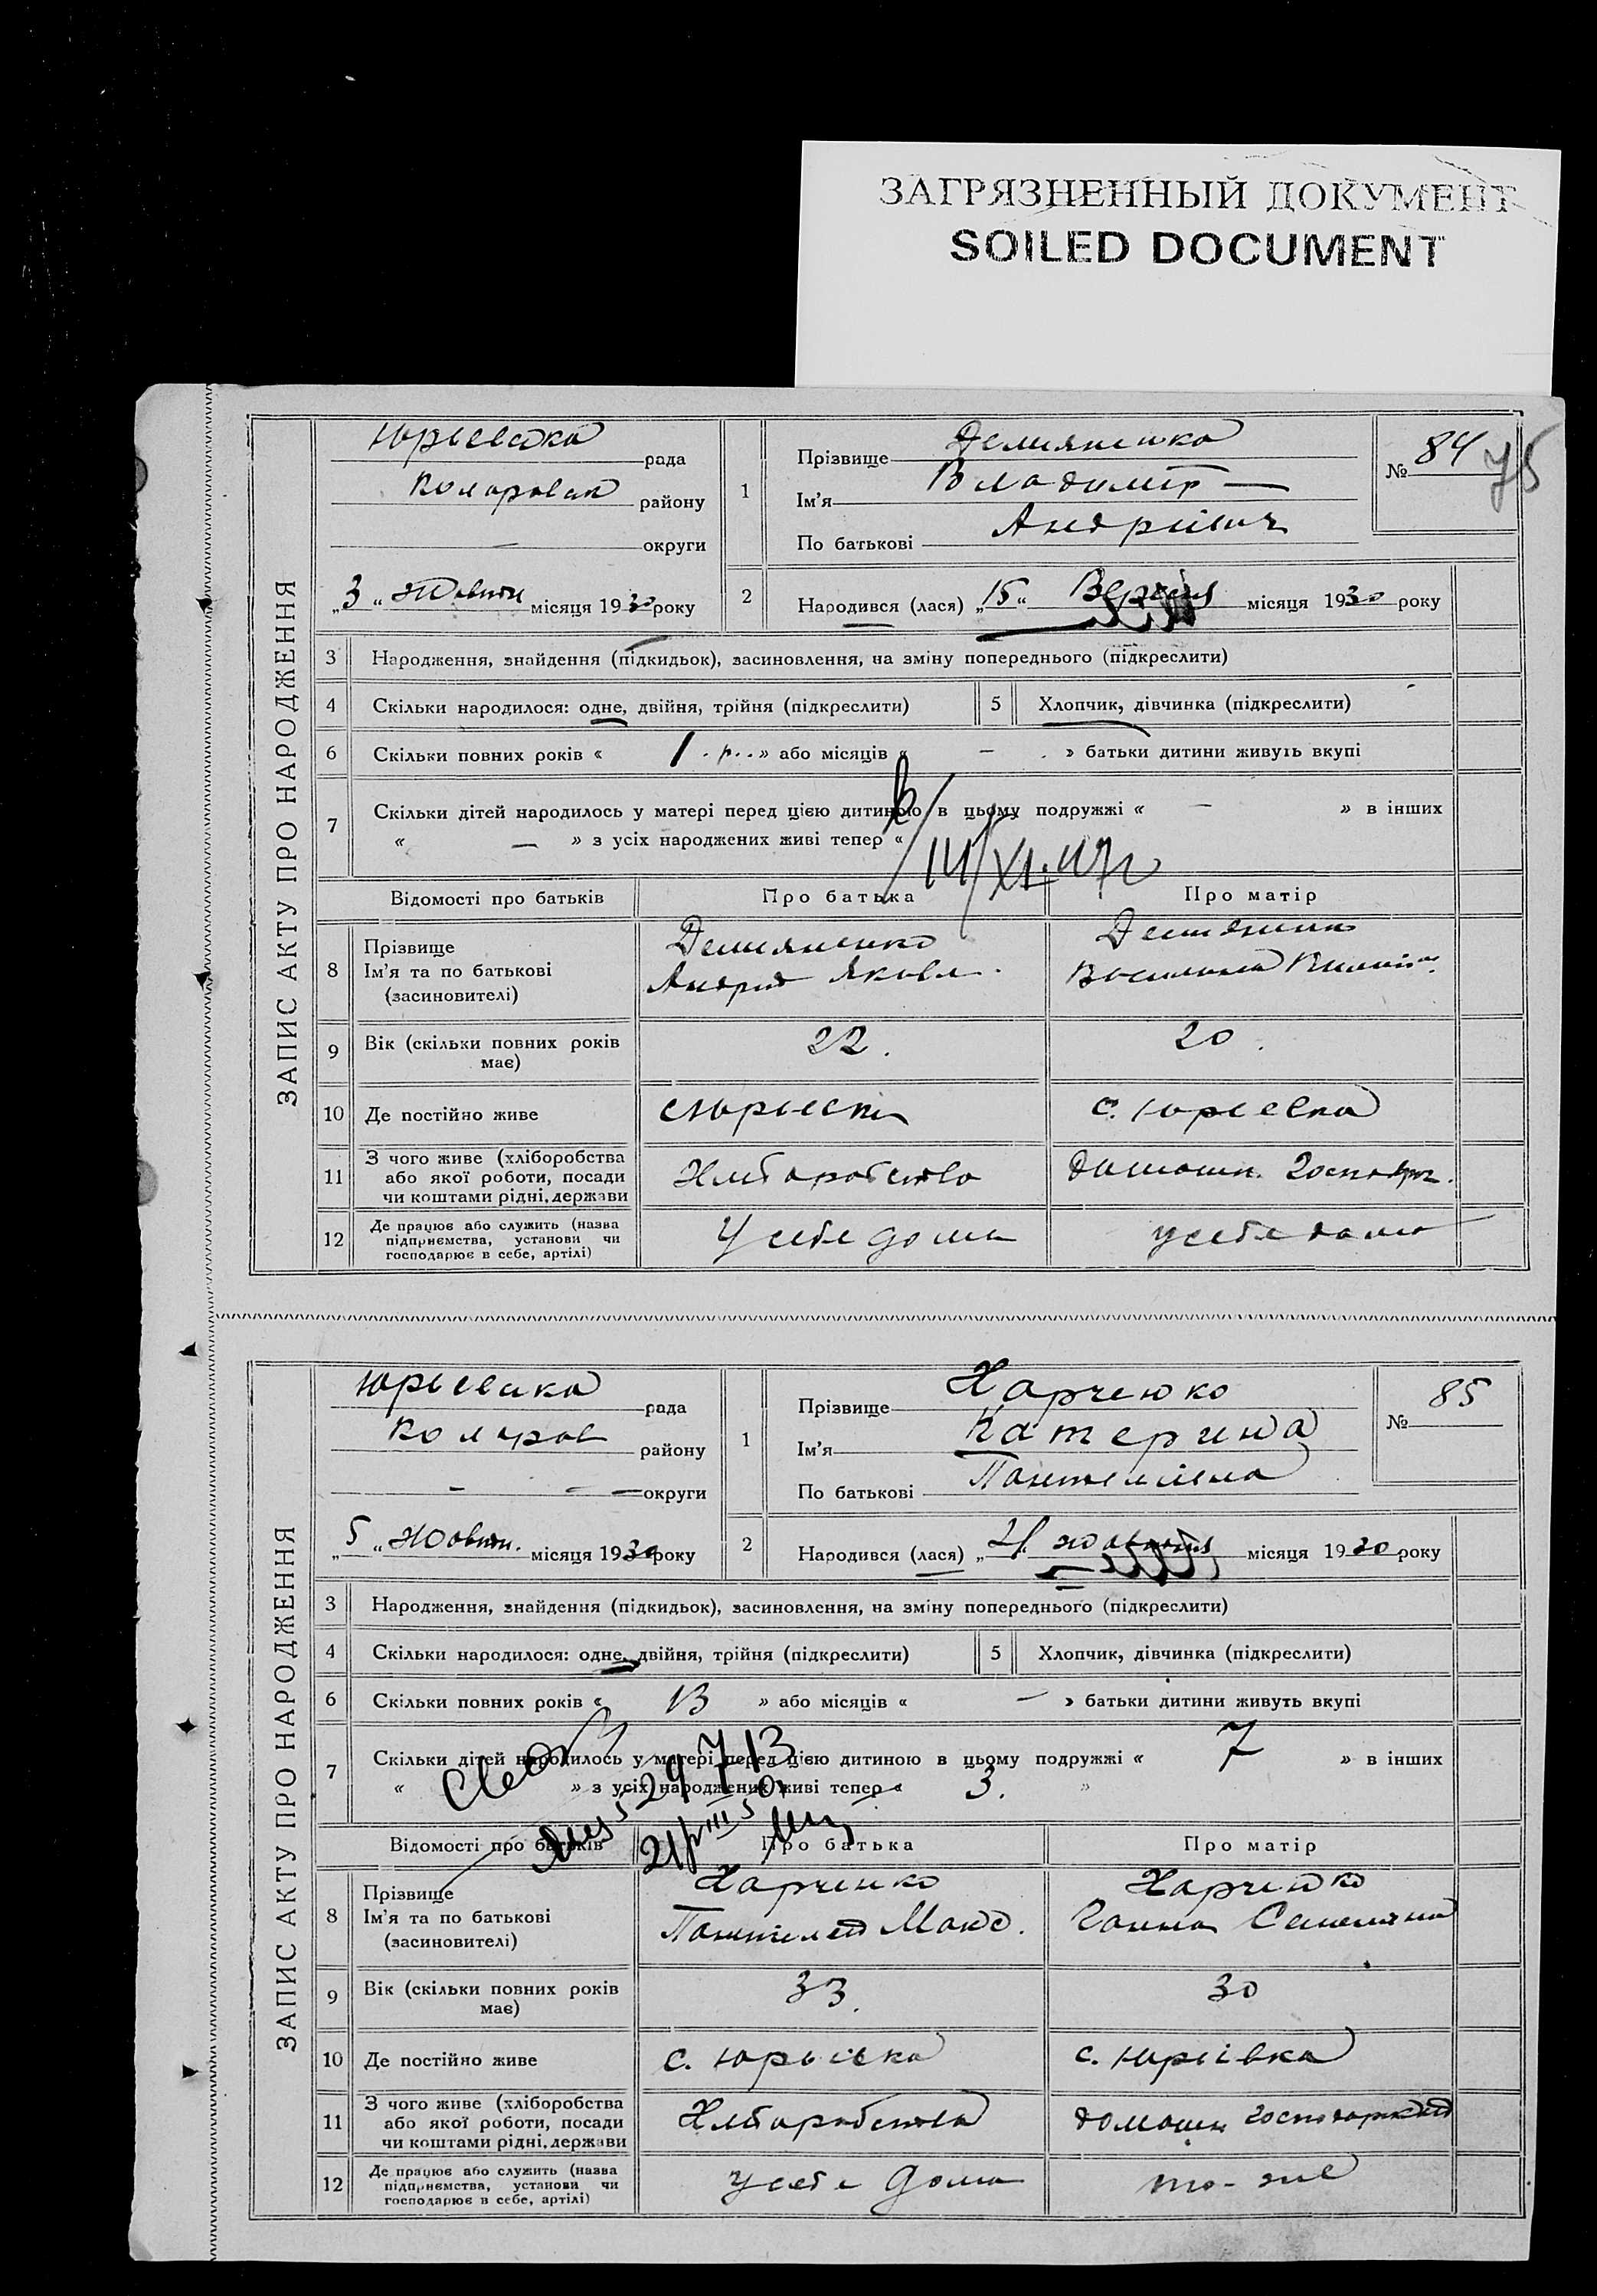 ЗАГРЯЗНЕННЫЙ ДОКУМЕНТ
SOILED DOCUMENT
ЗАПИС АКТУ ПРО НАРОДЖЕННЯ
Юрьевска рада
району
— округи
„3“ Жовтн місяця 1930 року
1
Прізвище Демяненко
Ім'я Владимір —
По батькові Андрієвич
№ 84
75
2
Народився (лася) „15“ Вересня місяця 1930 року
3 Народження, знайдення (підкидьок), засиновлення, на зміну попереднього (підкреслити)
4 Скільки народилося: одне, двійня, трійня (підкреслити)
5 Хлопчик, дівчинка (підкреслити)
6 Скільки повних років « 1 . р. . » або місяців « — » батьки дитини живуть вкупі
7 Скільки дітей народилось у матері перед цією дитиною в цьому подружжі « — » в інших
« — » з усіх народжених живі тепер «
Відомості про батьків Про батька Про матір
8 Прізвище
Ім'я та по батькові
(засиновителі)
Демяненко
Андрій Яковл.
9 Вік (скільки повних років має)
22. 20.
10 Де постійно живе
с. Юрьевка
11 З чого живе (хліборобства або якої роботи, посади чи коштами рідні, держави
Хліборобство Домашн. господар.
12 Де працює або служить (назва підприємства, установи чи господарює в себе, артілі)
У себе дома у себе дома
ЗАПИС АКТУ ПРО НАРОДЖЕННЯ
Юрьевска рада
району
— — — округи
„5“ Жовтн. місяця 1930 року
1
Прізвище Харченко
Ім'я Катерина
По батькові
№ 85
2
Народився (лася) „4. жовтня місяця 1930 року
3 Народження, знайдення (підкидьок), засиновлення, на зміну попереднього (підкреслити)
4 Скільки народилося: одне, двійня, трійня (підкреслити)
5 Хлопчик, дівчинка (підкреслити)
6 Скільки повних років « 13 » або місяців « — » батьки дитини живуть вкупі
7 Скільки дітей народилось у матері перед цією дитиною в цьому подружжі « 7 » в інших
« » з усіх народжених живі тепер « 3. »
Відомості про батьків Про батька Про матір
8 Прізвище
Ім'я та по батькові
(засиновителі)
Харченко Харченко
Макс. Ганна
9 Вік (скільки повних років має)
33. 30
10 Де постійно живе
с. Юрьівка с. Юрьівка
11 З чого живе (хліборобства або якої роботи, посади чи коштами рідні, держави
Хліборобство домашн
12 Де працює або служить (назва підприємства, установи чи господарює в себе, артілі)
У себе дома то-же